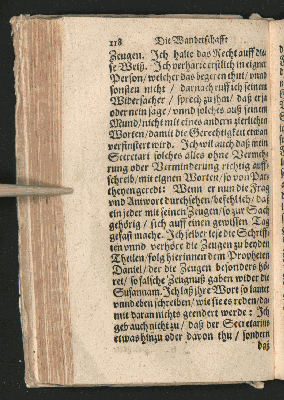 118 Die Wanderschafft
Zeugen. Ich halte das Recht auff die-
se Weiß. Ich verhöre erstlich in eigner
Person/ welcher das begeren thut/ vnnd
sonsten nicht / darnach ruff ich seinen
Widersacher / sprech zu jhm/ daß er ja
oder nein sage/ vnnd solches auß seinem
Mund/ nicht mit eines andern zierlichen
Worten/ damit die Gerechtigkeit etwan
verfinstert wird. Ich wil auch daß mein
Secretari solches alles ohne Vermeh-
rung oder Verminderung richtig auff-
schreib/ mit eignen Worten/ so von Par-
theyen geredt: Wenn er nun die Frag
vnd Antwort durchsehen/ befehl ich/ daß
ein jeder mit seinen Zeugen/ so zur Sach
gehörig / sich auff einen gewissen Tag
gefast mache. Ich selber lese die Schriff-
ten vnnd verhöre die Zeugen zu beyden
Theilen/ folg hierinnen dem Propheten
Daniel/ der die Zeugen besonders hö-
ret/ so falsche Zeugnuß gaben wider die
Susannam. Ich laß jhre Wort so lauter
vnnd eben schreiben/ wie sie es reden/ da-
mit daran nichts geendert werde: Ich
geb auch nicht zu/ daß der Secretarius
etwas hinzu oder davon thu/ sondern
daß